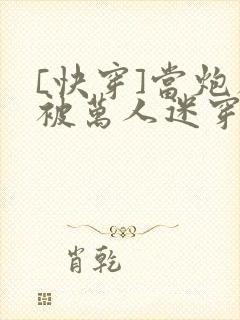 [快穿]當炮
被萬人迷穿
肖乾